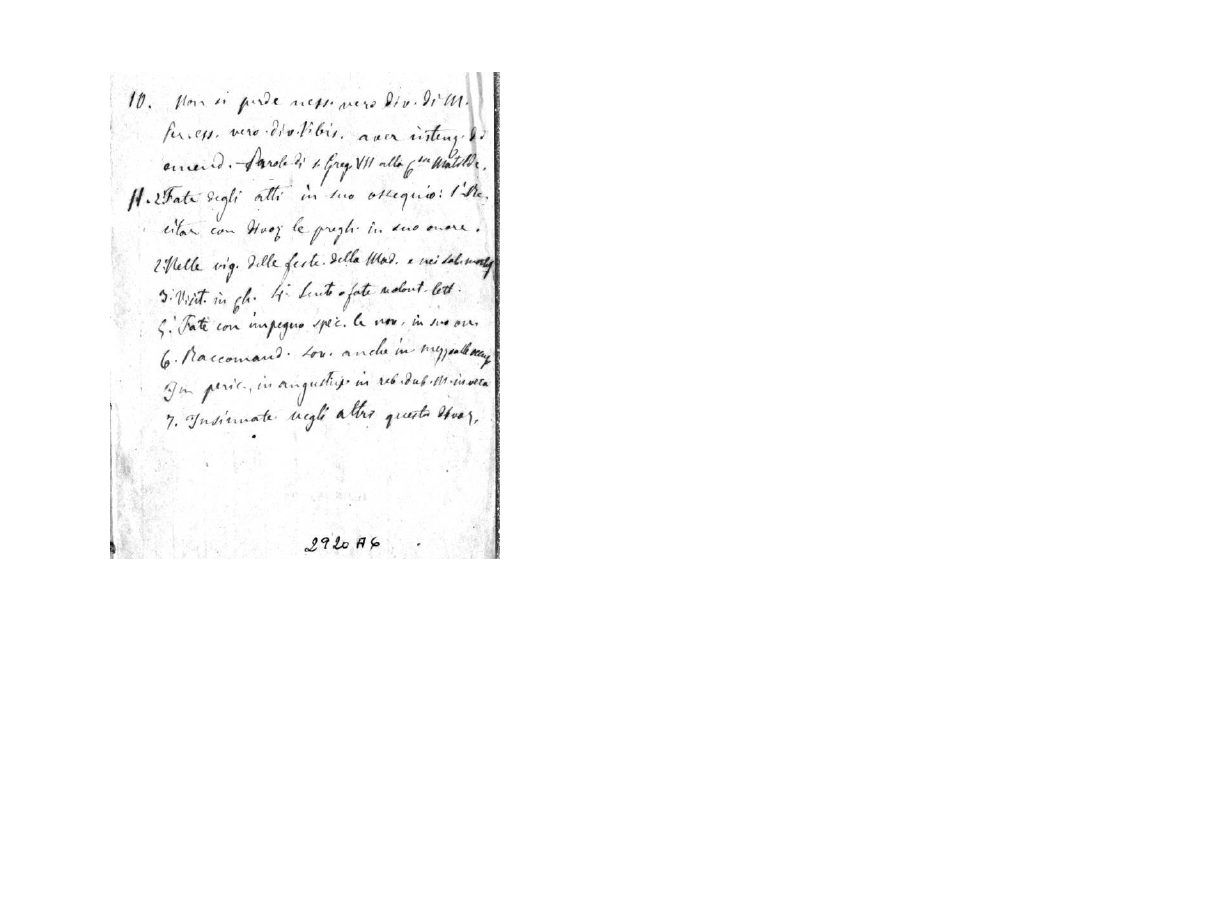 10. Non si perde ness. vero div. di M.
Per ess. vero div. bis. aver intenz. di
emend. - Parole di s. Greg. VII alla C.ssa Matilde.
11. Fate degli atti in suo ossequio: 1° Re-
citar con divoz. le pregh. in suo onore.
2° Nelle vig. delle feste della Mad. e nei sab. mortif.
3° Visit. in ch. 4° Sent. o fate volont. lett.
5° Fate con impegno spec. le nov. in suo on.
6. Raccomand. sov. anche in mezzo alle occup.
In peric., in angustiis, in reb. dub. M. invoca
7. Insinuate negli altri questa divoz.
2920 A 6